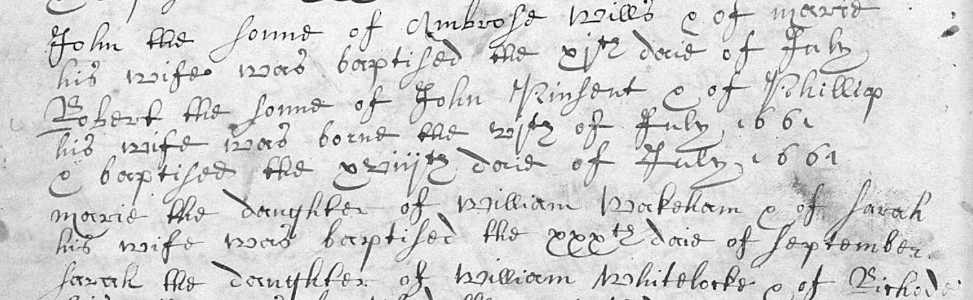 John the sonne of Ambrose Wills & of Marie
his wife was baptised the xjth daie of July
Robert the sonne of John Pinsent & of Phillip
his wife was borne the vjth of July 1661
& baptised the xviijth daie of July 1661
Marie the daughter of William Wakeham & of Sarah
his wife was baptised the xxxth daie of September
Sarah the daughter of William Whitelocke & of